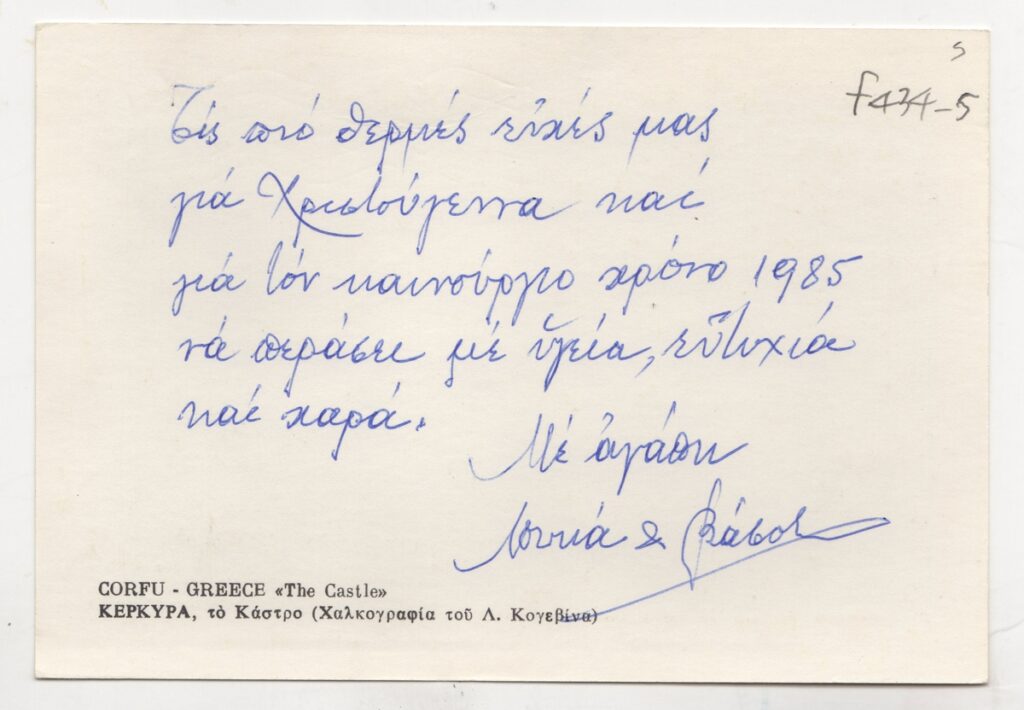 s
f434-5
Τίς πιό θερμές εὐχές μας
γιά Χριστούγεννα καί
γιά τόν καινούργιο χρόνο 1985
νά περάσει μέ ὑγεία, εὐτυχία
καί χαρά.
Μέ ἀγάπη
& Βάσος
CORFU - GREECE «The Castle»
ΚΕΡΚΥΡΑ, τὸ Κάστρο (Χαλκογραφία τοῦ Λ. Κογεβίνα)